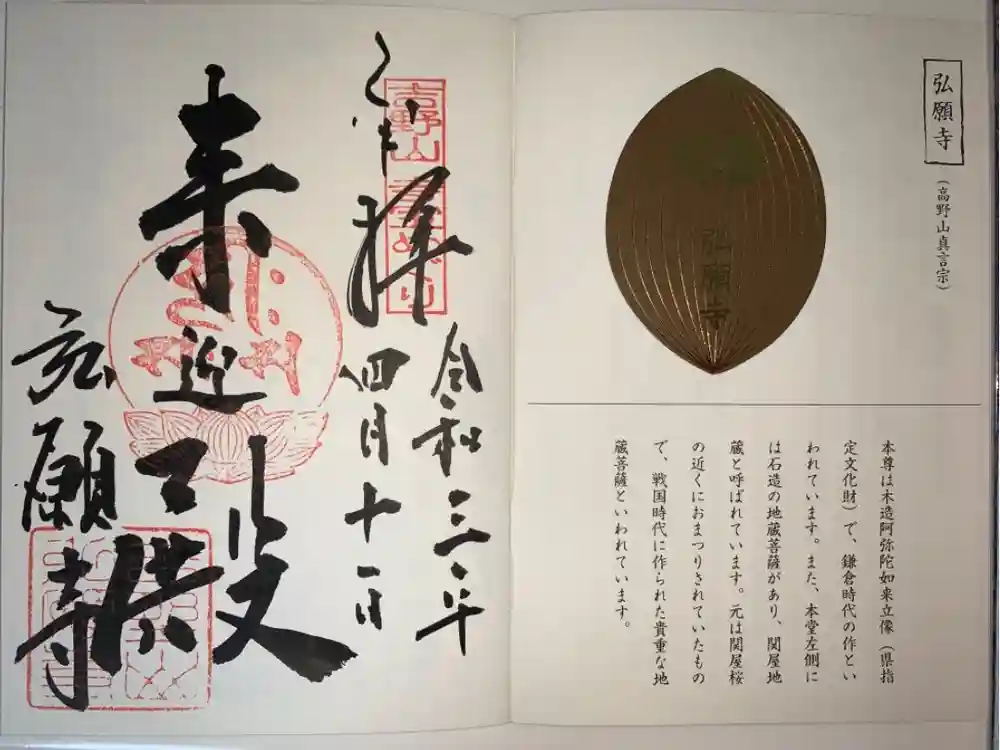 弘願寺
（高野山真言宗）
弘願寺
本尊は木造阿弥陀如来立像（県指
定文化財）で、鎌倉時代の作とい
われています。また、本堂左側に
は石造の地蔵菩薩があり、関屋地
蔵と呼ばれています。元は関屋桜
の近くにおまつりされていたもの
で、戦国時代に作られた貴重な地
蔵菩薩といわれています。
令和三年
四月十一日
奉拝
吉野山
めぐり
来迎殿
弘願寺